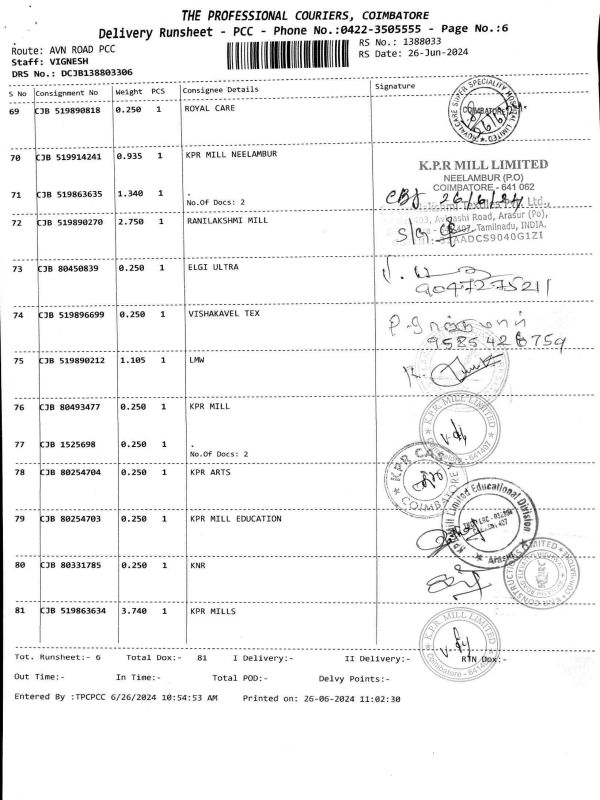 THE PROFESSIONAL COURIERS, COIMBATORE
Delivery Runsheet - PCC - Phone No.:0422-3505555 - Page No.:6
Route: AVN ROAD PCC
RS No.: 1388033
Staff: VIGNESH
RS Date: 26-Jun-2024
DRS No.: DCJB138803306
S No Consignment No Weight PCS Consignee Details Signature
69 CJB 519890818 0.250 1 ROYAL CARE
COIMBATORE
70 CJB 519914241 0.935 1 KPR MILL NEELAMBUR
K.P.R MILL LIMITED
NEELAMBUR (P.O)
COIMBATORE - 641 062
71 CJB 519863635 1.340 1 .
No.Of Docs: 2
CBJ 26/6/24
Ltd.,
72 CJB 519890270 2.750 1 RANILAKSHMI MILL
Road, Arasur (Po),
Tamilnadu, INDIA.
AADCS9040G1ZI
73 CJB 80450839 0.250 1 ELGI ULTRA
9047275211
74 CJB 519896699 0.250 1 VISHAKAVEL TEX
9585426759
75 CJB 519890212 1.105 1 LMW
76 CJB 80493477 0.250 1 KPR MILL
K.P.R. MILL LIMITED
Coimbatore - 641407
77 CJB 1525698 0.250 1 .
No.Of Docs: 2
78 CJB 80254704 0.250 1 KPR ARTS
KPR CAS
COIMBATORE
79 CJB 80254703 0.250 1 KPR MILL EDUCATION
KPR Mill Limited Educational Division
80 CJB 80331785 0.250 1 KNR
KNR CONSTRUCTIONS LIMITED
81 CJB 519863634 3.740 1 KPR MILLS
K.P.R. MILL LIMITED
Coimbatore - 641407
Tot. Runsheet:- 6 Total Dox:- 81 I Delivery:- II Delivery:- RTN Dox:-
Out Time:- In Time:- Total POD:- Delvy Points:-
Entered By :TPCPCC 6/26/2024 10:54:53 AM Printed on: 26-06-2024 11:02:30